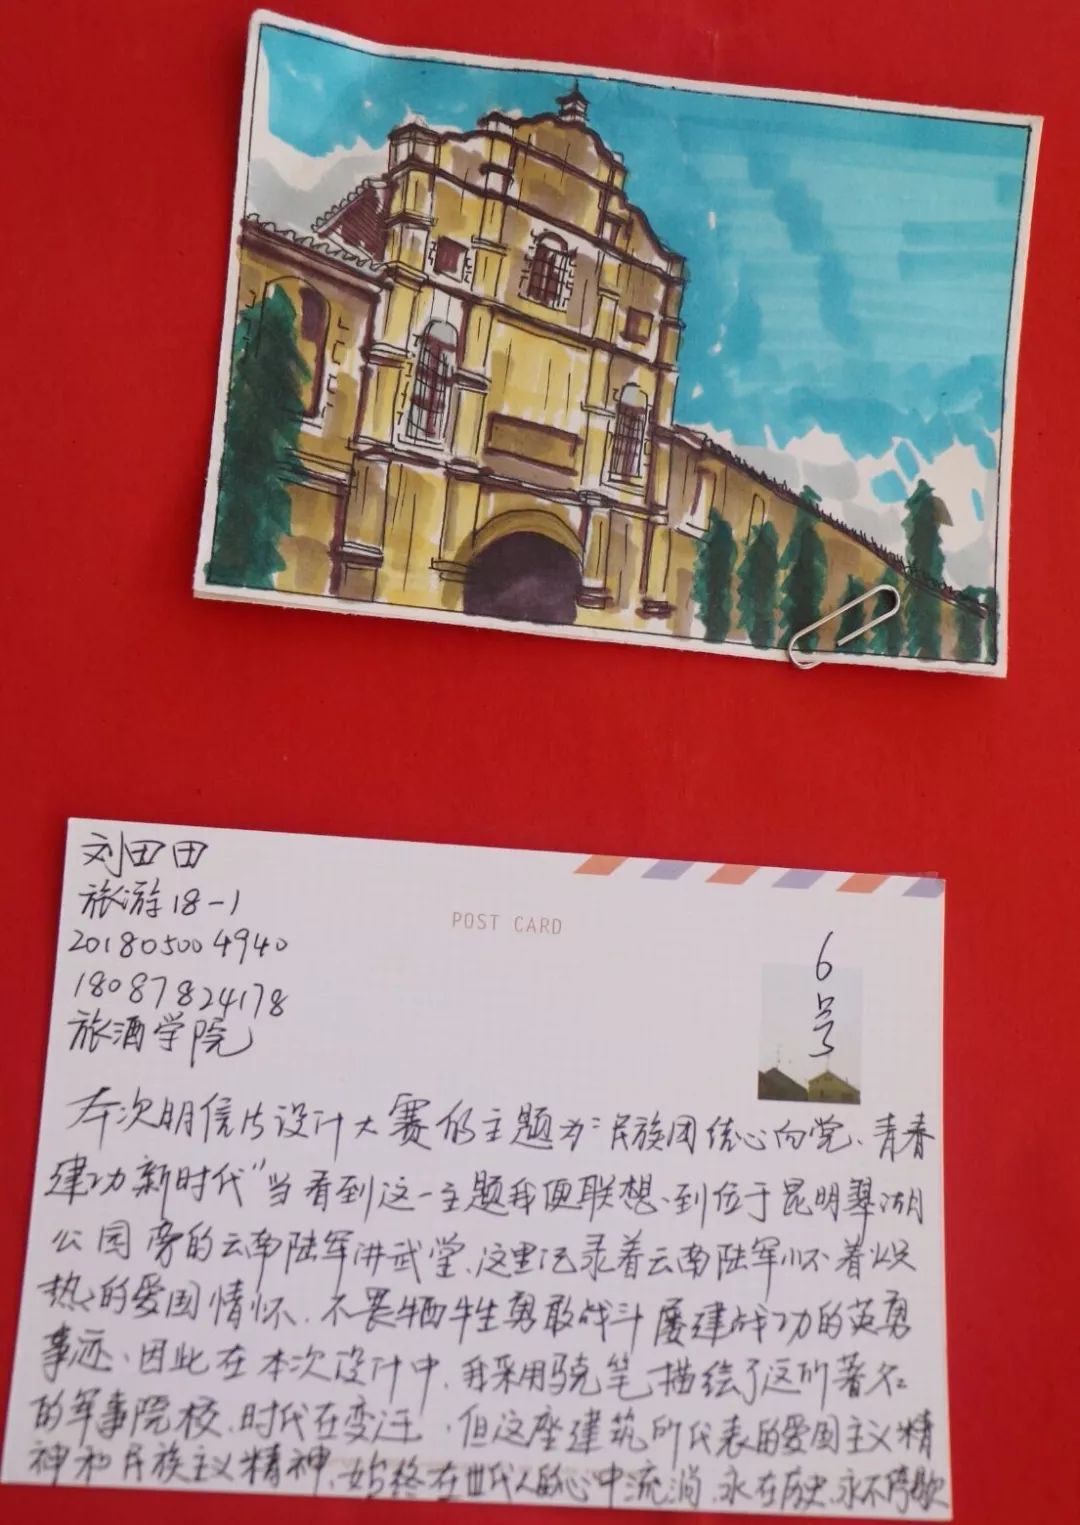 刘田田
旅游18-1
201805004940
18087824178
旅酒学院
POST CARD
6号
本次明信片设计大赛的主题为"民族团结心向党、青春
建功新时代"当看到这一主题我便联想到位于昆明翠湖
公园旁的云南陆军讲武堂、这里记录着云南陆军怀着炽
热的爱国情怀、不畏牺牲勇敢战斗屡建战功的英勇
事迹、因此在本次设计中、我采用马克笔描绘了这所著名
的军事院校、时代在变迁、但这座建筑所代表的爱国主义精
神和民族主义精神、始终在世代人的心中流淌、永在历史、永不停歇